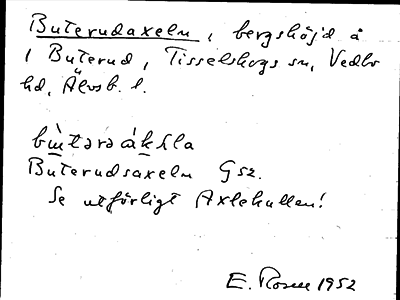 Buterudaxeln, bergshöjd å
1 Buterud, Tisselskogs sn, Vedbo
hd, Älvsb. l.
Buterudsaxeln Gsz.
Se utförligt Axlekullen!
E. Rosen 1952